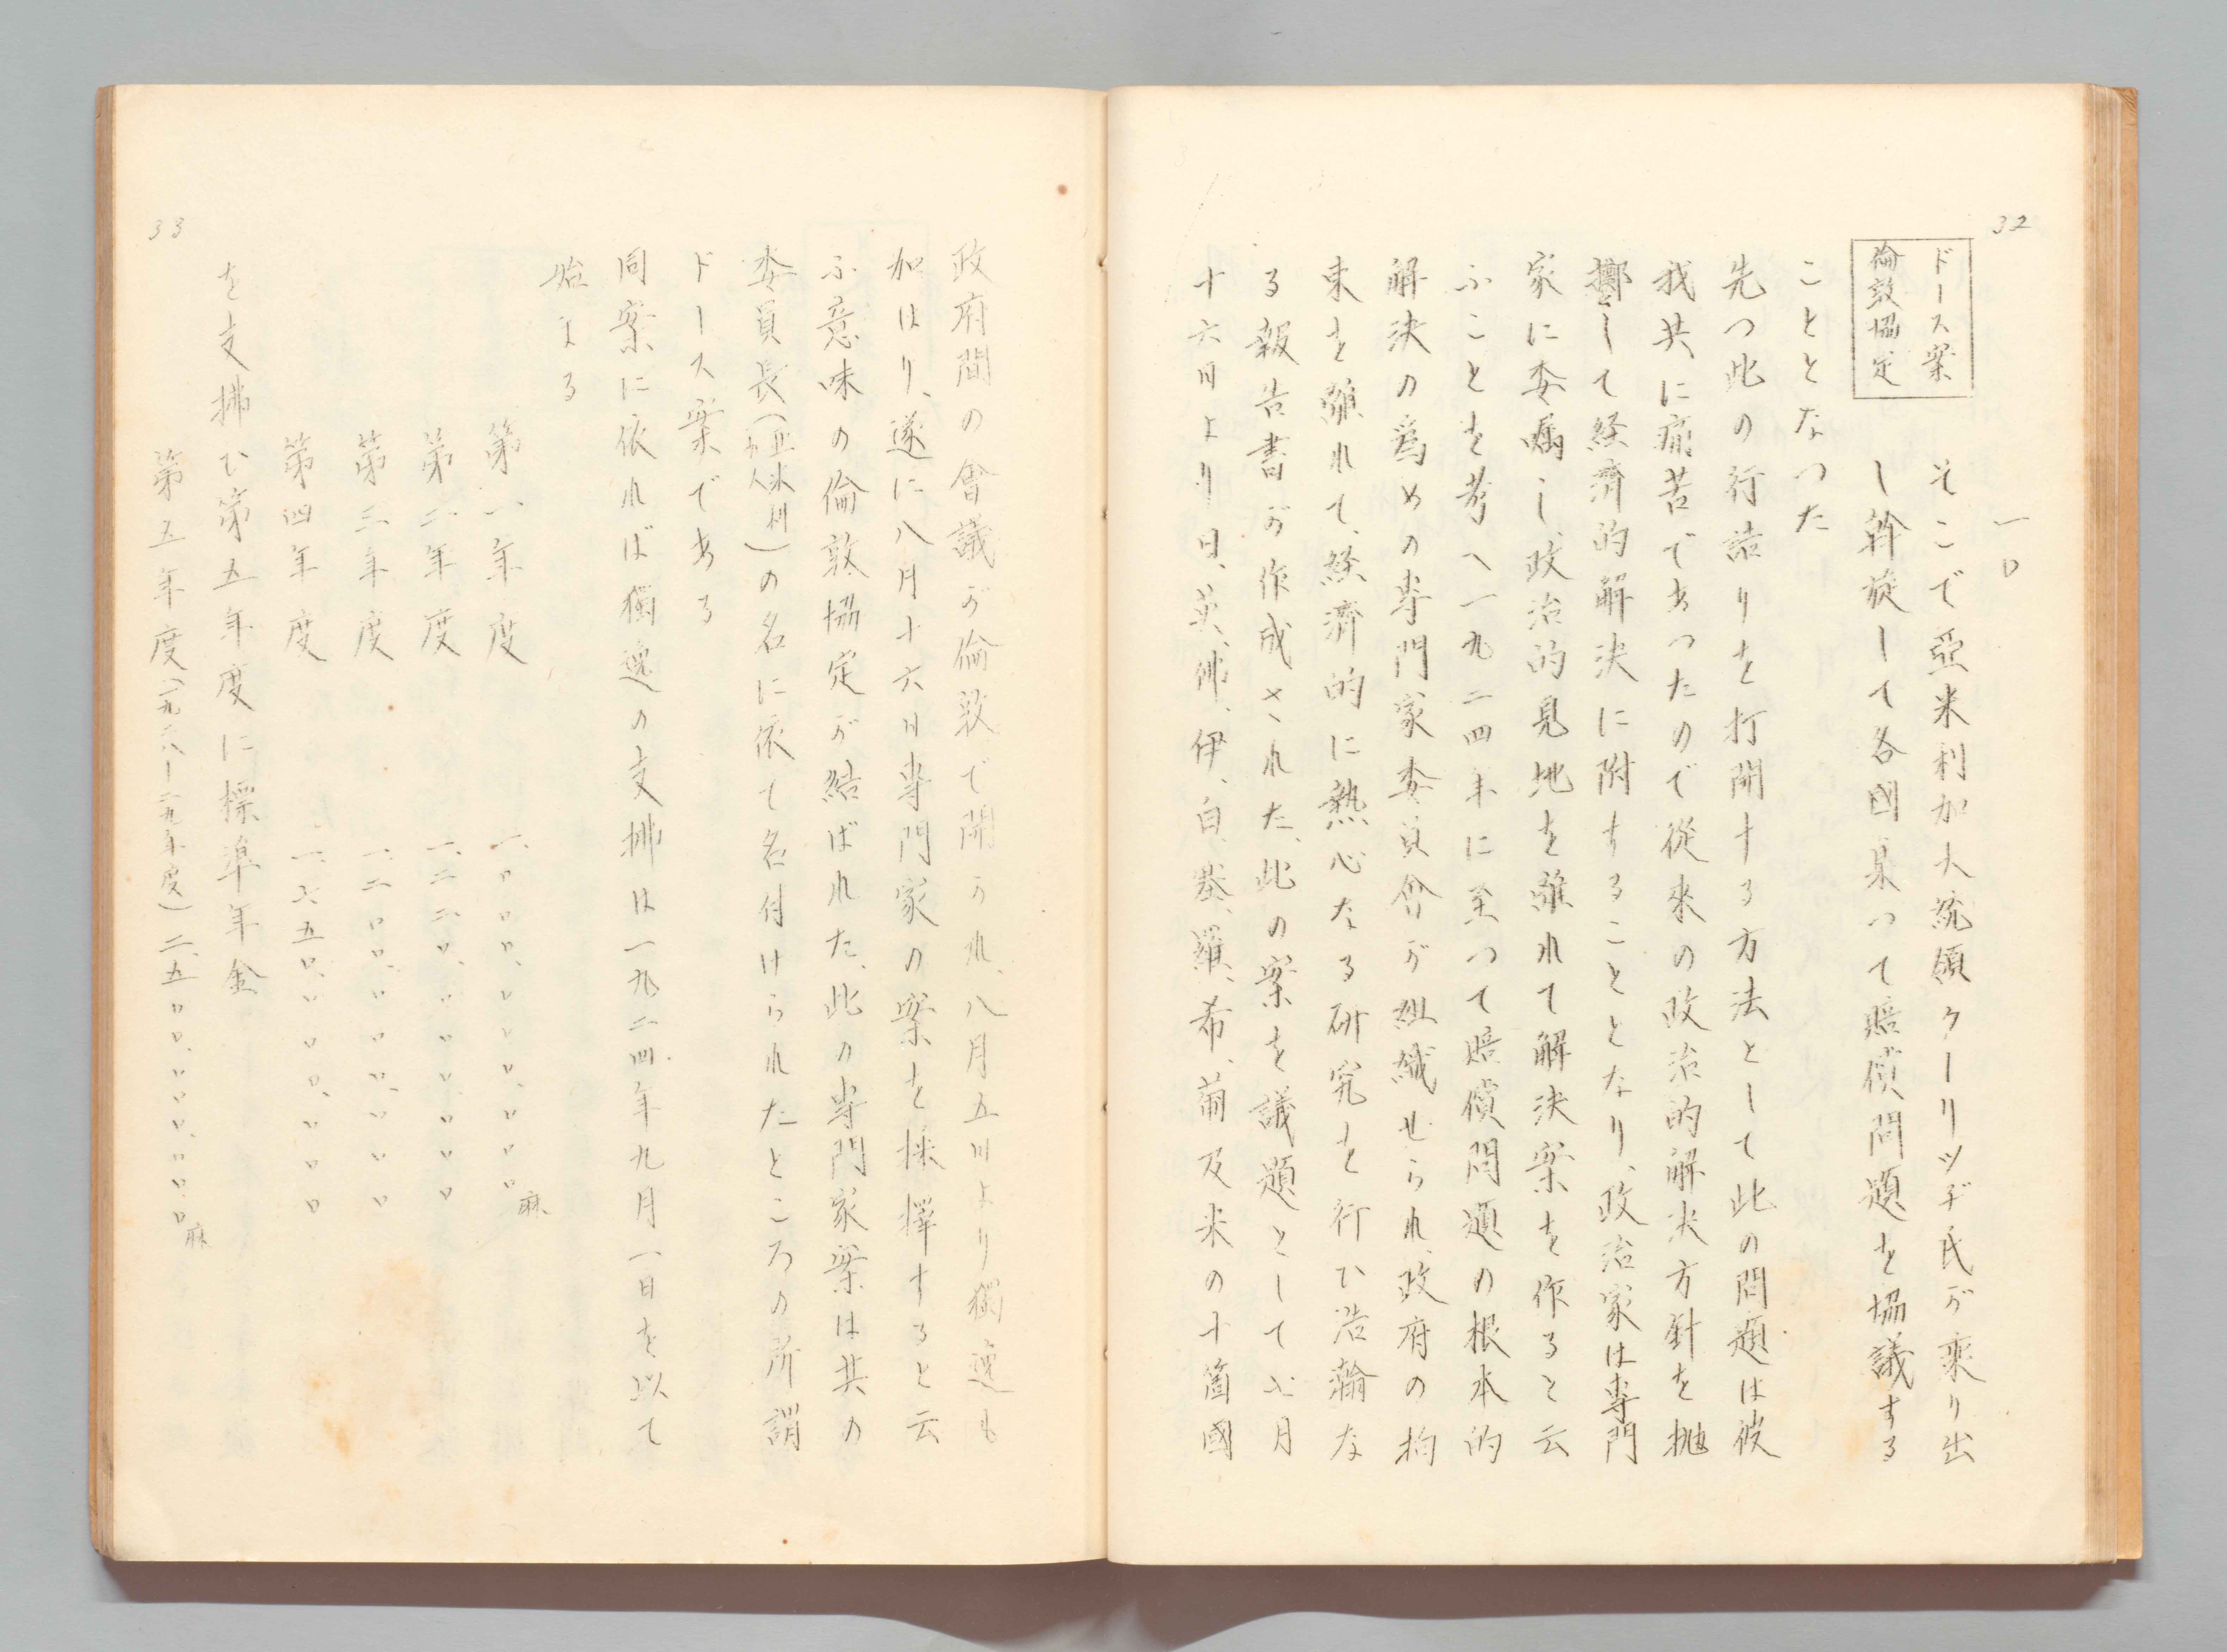 32
一〇
ドース案
倫敦協定
そこで亞米利加大統領クーリッヂ氏が乘り出
し斡旋して各國集つて賠償問題を協議する
こととなつた
先つ此の行詰りを打開する方法として此の問題は彼
我共に痛苦であつたので從來の政治的解決方針を抛
擲して経濟的解決に附することとなり、政治家は専門
家に委嘱し、政治的見地を離れて解決案を作ると云
ふことを考へ一九二四年に至つて賠償問題の根本的
解決の爲めの専門家委員会が組織せられ、政府の拘
束を離れて、経濟的に熱心なる研究を行ひ浩瀚な
る報告書が作成された、此の案を議題として七月
十六日より日、英、佛、伊、白、塞、羅、希、葡及米の十箇國
政府間の會議が倫敦で開かれ、八月五日より獨逸も
加はり、遂に八月十六日専門家の案を採擇すると云
ふ意味の倫敦協定が結ばれた、此の専門家案は其の
委員長(亞米利加人)の名に依て名付けられたところの所謂
ドース案である
同案に依れば獨逸の支拂は一九二四年九月一日を以て
始まる
第一年度 一、〇〇〇、〇〇〇、〇〇〇麻
第二年度 一、二二〇、〇〇〇、〇〇〇
第三年度 一、二〇〇、〇〇〇、〇〇〇
第四年度 一、七五〇、〇〇〇、〇〇〇
を支拂ひ第五年度に標準年金
第五年度(一九二八—二九年度)二、五〇〇、〇〇〇、〇〇〇麻
33